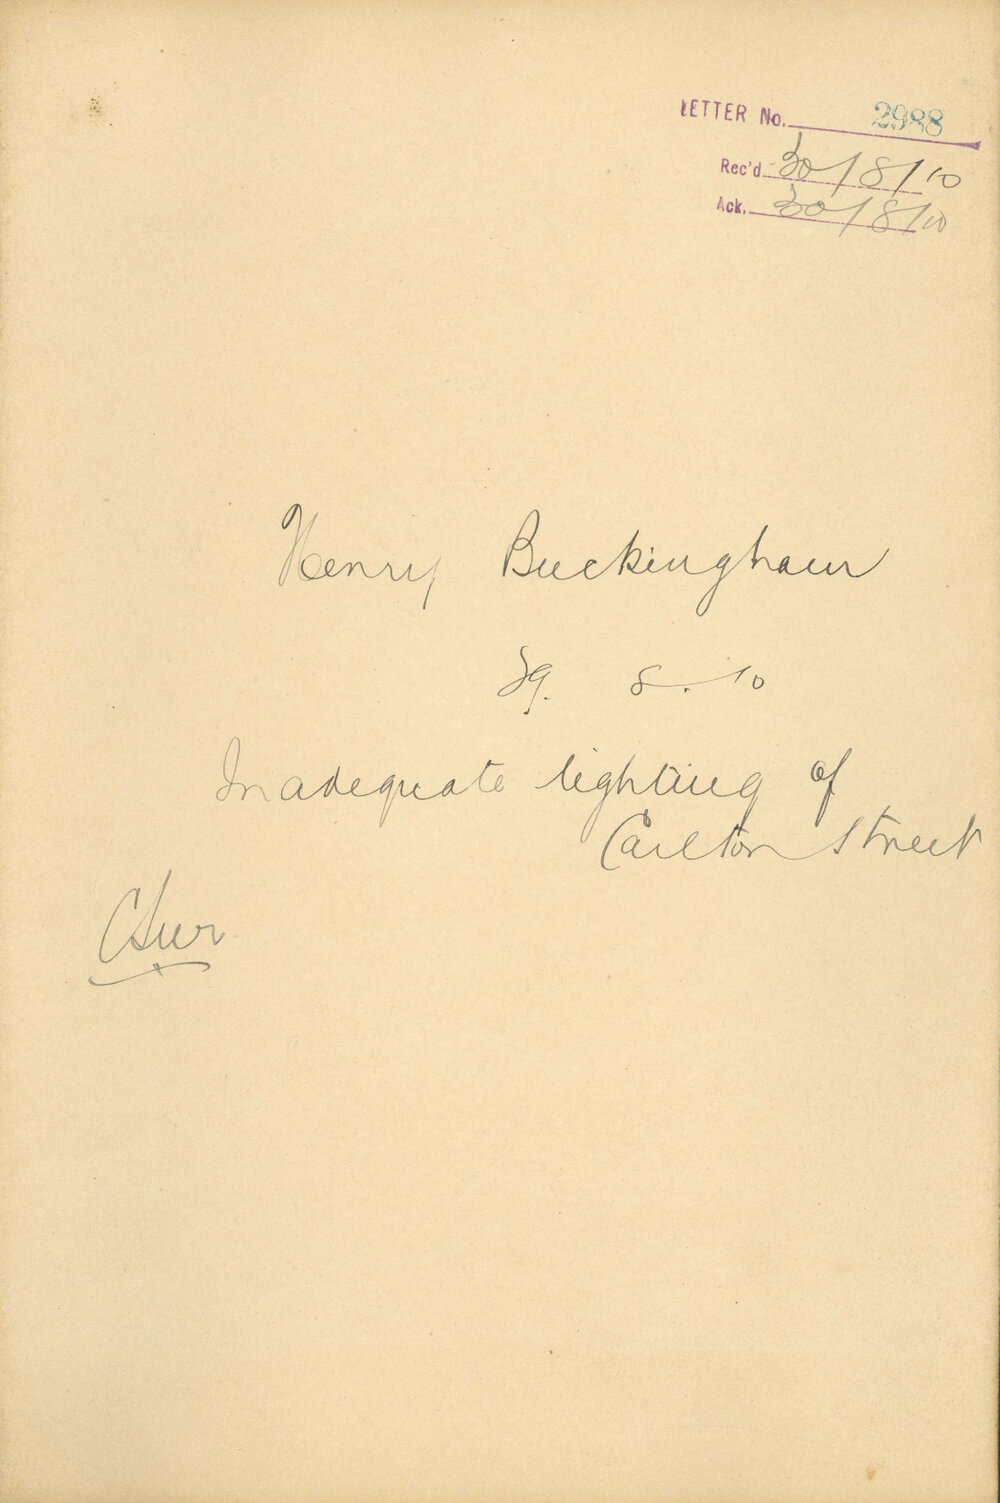 LETTER No. 2988
Rec'd 30/8/10
Ack. 30/8/10
Henry Buckingham
29. 8. 10
Inadequate lighting of
Carlton Street
CSur